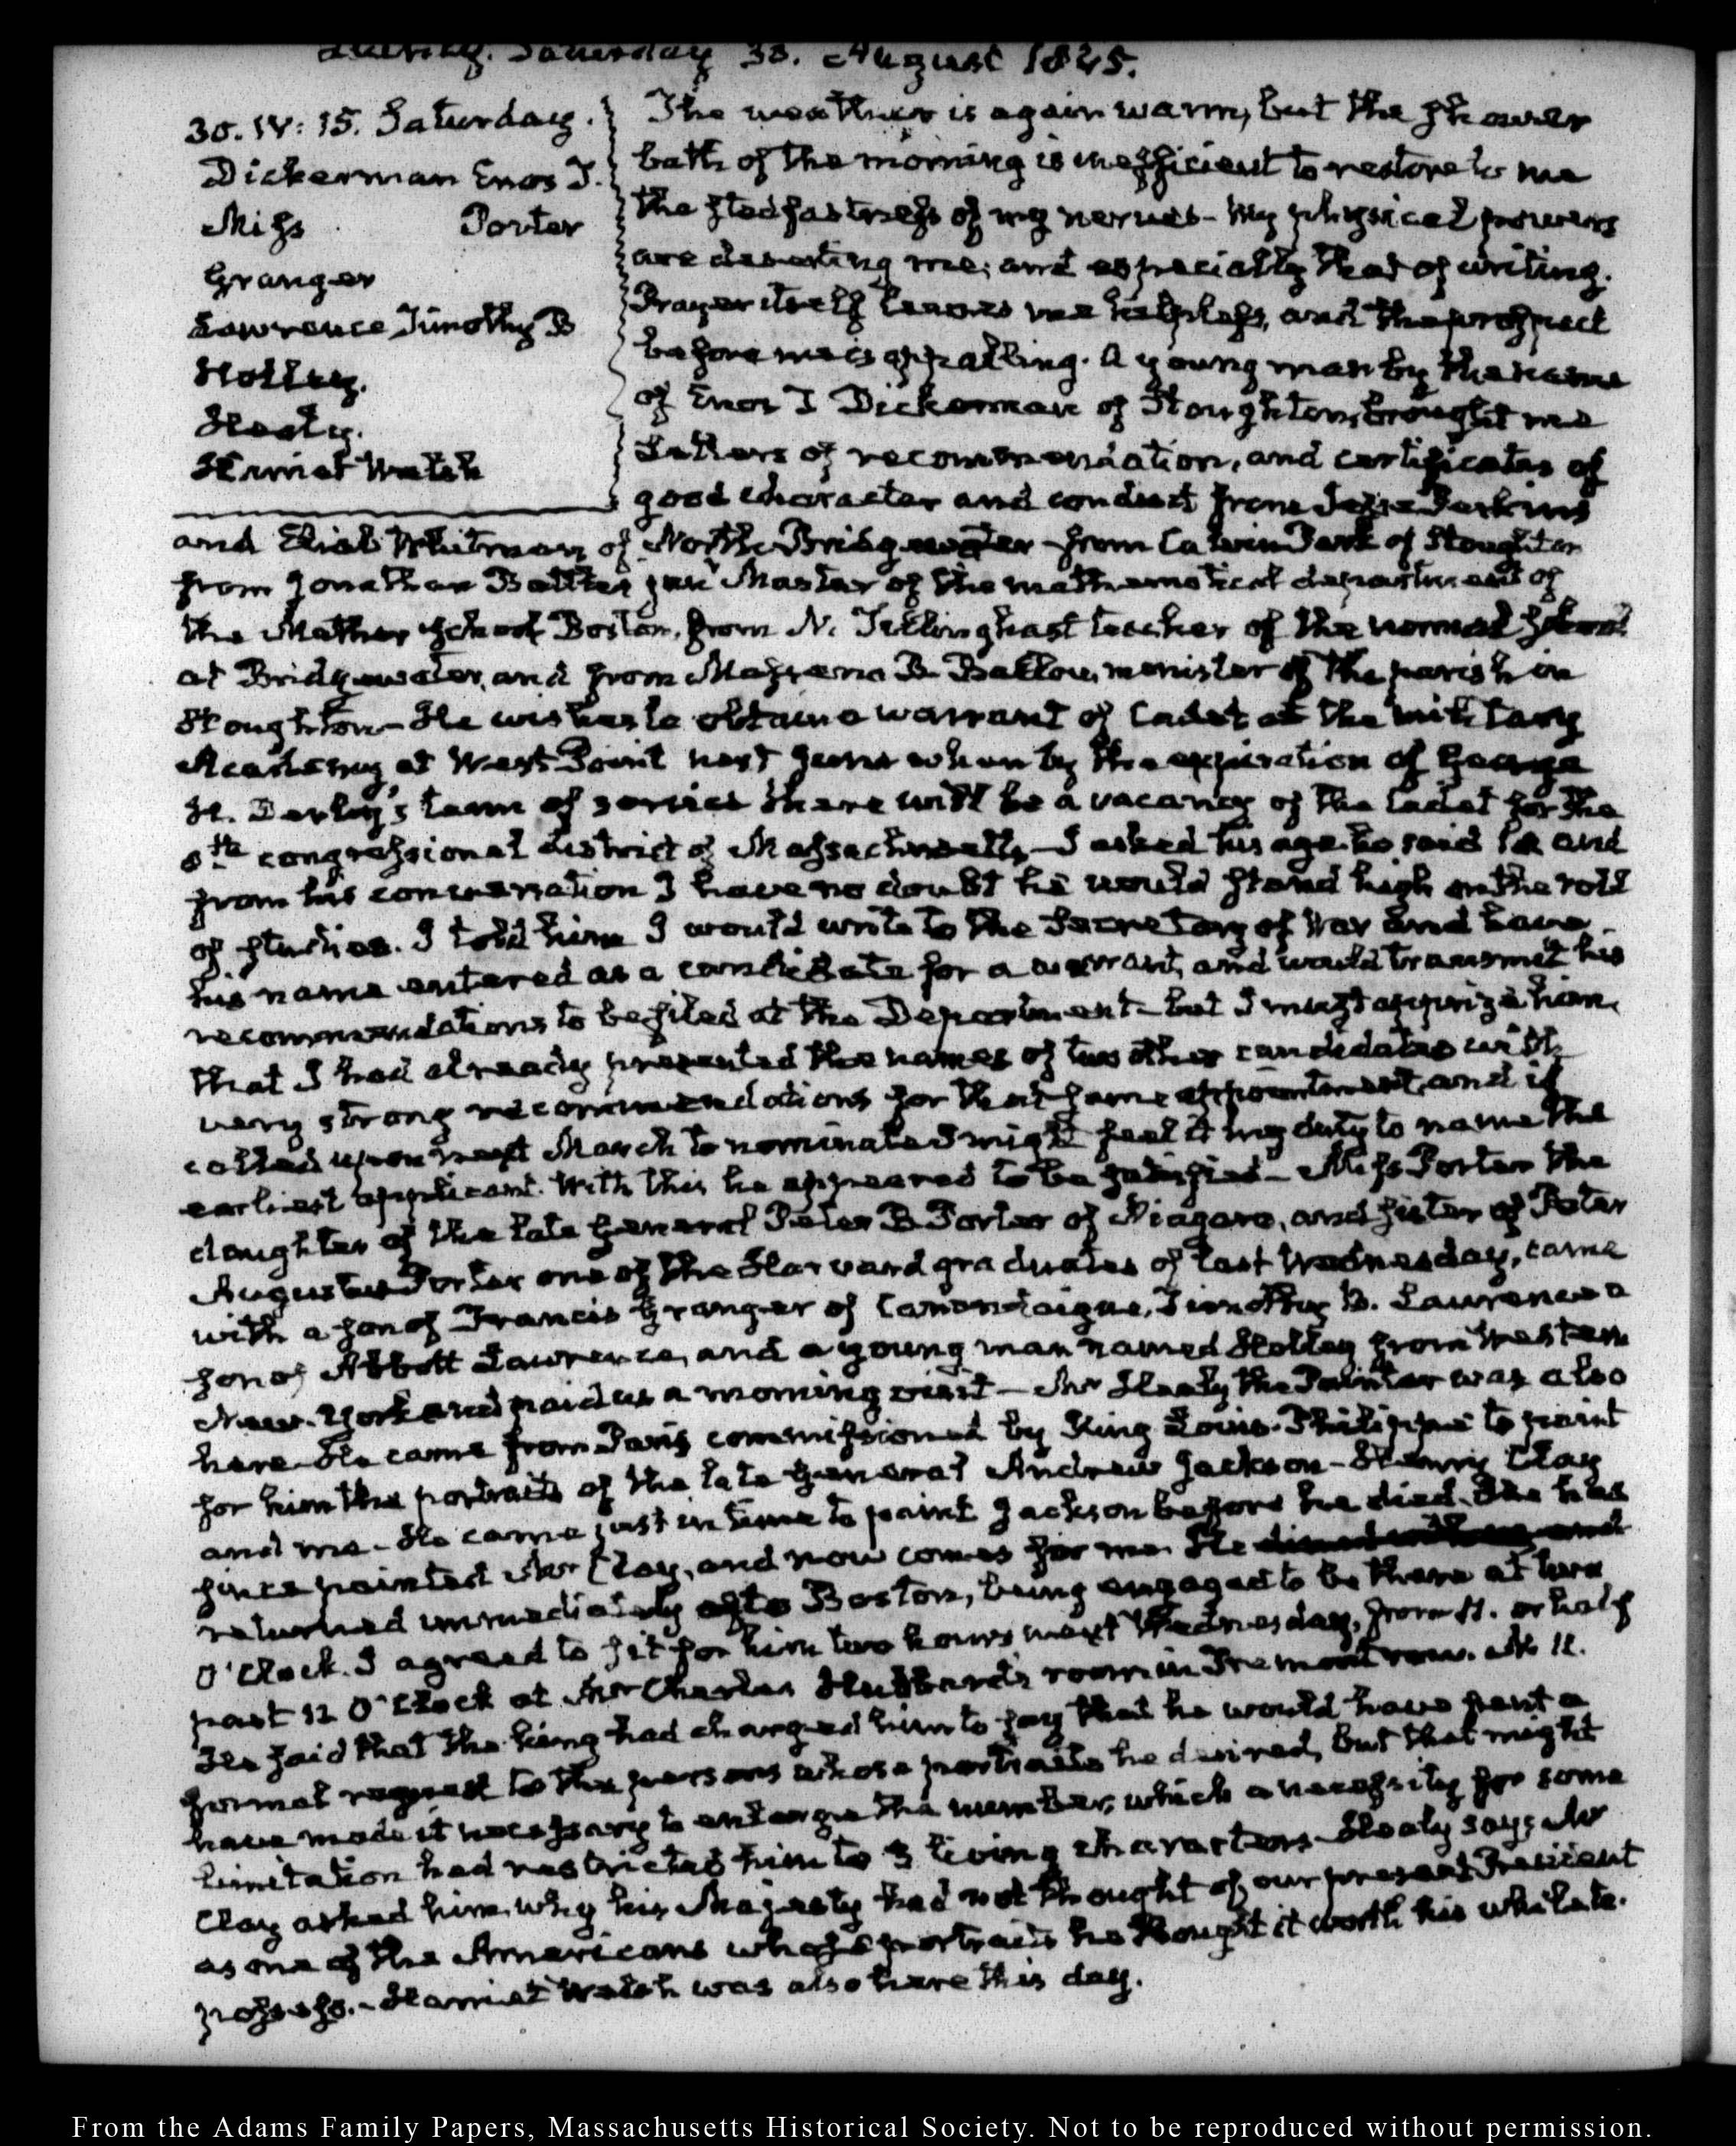 Quincy. Saturday 30. August 1845.
30. IV: 15. Saturday.
Dickerman Enos T.
Miss Porter
Granger
Lawrence Timothy B
Holley.
Healy.
Harriet Welsh
The weather is again warm, but the shower
bath of the morning is inefficient to restore to me
the stedfastness of my nerves - My physical powers
are deserting me; and especially that of writing.
Prayer itself leaves me helpless, and the prospect
before me is appalling. A young man by the name
of Enos T Dickerman of Stoughton, brought me
Letters of recommendation, and certificates of
good character and conduct from Jesse Perkins
and Eliab Whitman of North Bridgewater - from Calvin Park of Stoughton
from Jonathan Battles junr Master of the mathematical department of
the Mather school Boston, from N. Tillinghast teacher of the normal school
at Bridgewater, and from Massena B. Ballou, minister of the parish in
Stoughton - He wishes to obtain a warrant of Cadet at the military
Academy at West Point next June when by the expiration of George
H. Derby's term of service there will be a vacancy of the Cadet for the
8th congressional district of Massachusetts - I asked his age. he said and
from his conversation I have no doubt he would stand high on the roll
of studies. I told him I would write to the Secretary of War and have
his name entered as a candidate for a warrant, and would transmit his
recommendations to be filed at the Department - but I must apprize him,
that I had already presented the names of two other candidates with
very strong recommendations for that same appointment, and if
called upon next March to nominate I might feel it my duty to name the
earliest applicant. With this he appeared to be satisfied - Miss Porter the
daughter of the late General Peter B. Porter of Niagara, and sister of Peter
Augustus Porter one of the Harvard graduates of last Wednesday, came
with a son of Francis Granger of Canandaigua, Timothy B. Lawrence a
son of Abbott Lawrence, and a young man named Holley from Western
New-York and paid us a morning visit - Mr Healy the Painter was also
here. He came from Paris commissioned by King Louis-Philippe to paint
for him the portraits of the late General Andrew Jackson - Henry Clay
and me - He came just in time to paint Jackson before he died. He has
since painted Mr Clay, and now comes for me. He dined with us and
returned immediately to Boston, being engaged to be there at two
O'Clock. I agreed to sit for him two hours next Wednesday, from 11. or half
past 12 O'Clock at Mr Charles Hubbard's room in Tremont row. No 11.
He said that the king had charged him to say that he would have sent a
formal request to the persons whose portraits he desired, but that might
have made it necessary to enlarge the number, which a necessity for some
limitation had restricted him to 3 living characters - Healy says Mr
Clay asked him, why his Majesty had not thought of our present President
as one of the Americans whose portraits he thought it worth his while to
possess. - Harriet Welsh was also here this day.
From the Adams Family Papers, Massachusetts Historical Society. Not to be reproduced without permission.